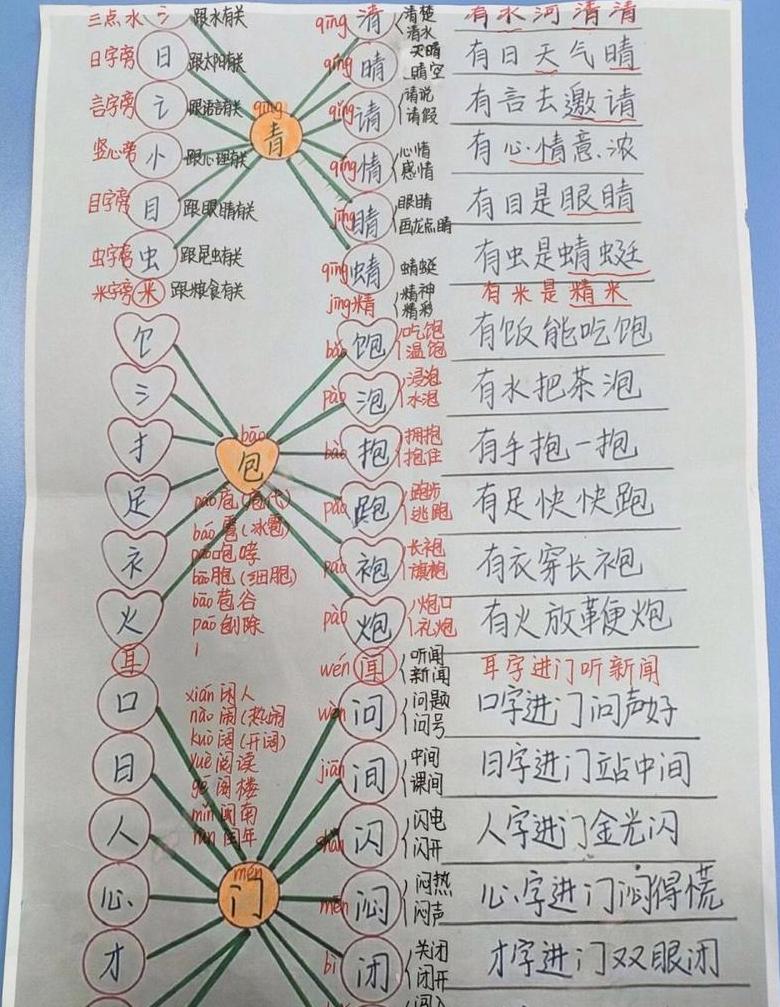 三点水 氵 跟水有关 qīng 清 清楚 清水 有水河清清
日字旁 日 跟太阳有关 qíng 晴 天晴 晴空 有日天气晴
言字旁 讠 跟语言有关 qǐng 请 请说 请假 有言去邀请
竖心旁 忄 跟心理有关 qíng 情 心情 感情 有心情意浓
qīng 青
目字旁 目 跟眼睛有关 jīng 睛 眼睛 画龙点睛 有目是眼睛
虫字旁 虫 跟昆虫有关 qīng 蜻 蜻蜓 有虫是蜻蜓
米字旁 米 跟粮食有关 jīng 精 精神 精彩 有米是精米
饣 bǎo 饱 吃饱 温饱 有饭能吃饱
氵 pào 泡 浸泡 水泡 有水把茶泡
扌 bào 抱 拥抱 抱住 有手抱一抱
bāo 包
足 pǎo 跑 跑步 逃跑 有足快快跑
páo 庖(庖代)
báo 雹(冰雹)
páo 咆哮
bāo 胞(细胞)
bāo 苞谷
páo 刨除
衤 páo 袍 长袍 旗袍 有衣穿长袍
火 pào 炮 火炮口 礼炮 有火放鞭炮
耳 wén 闻 听闻 新闻 耳字进门听新闻
口 wèn 问 问题 问号 口字进门问声好
xián 闲人
nào 闹(热闹
kuò 阔(开阔)
yuè 阅读
gé 阁楼
mǐn 闽南
rùn 闰年
日 jiān 间 中间 课间 日字进门站中间
人 shǎn 闪 闪电 闪开 人字进门金光闪
mén 门
心 mēn 闷 闷热 闷声 心字进门闷得慌
才 bì 闭 关闭 闭开 才字进门双眼闭